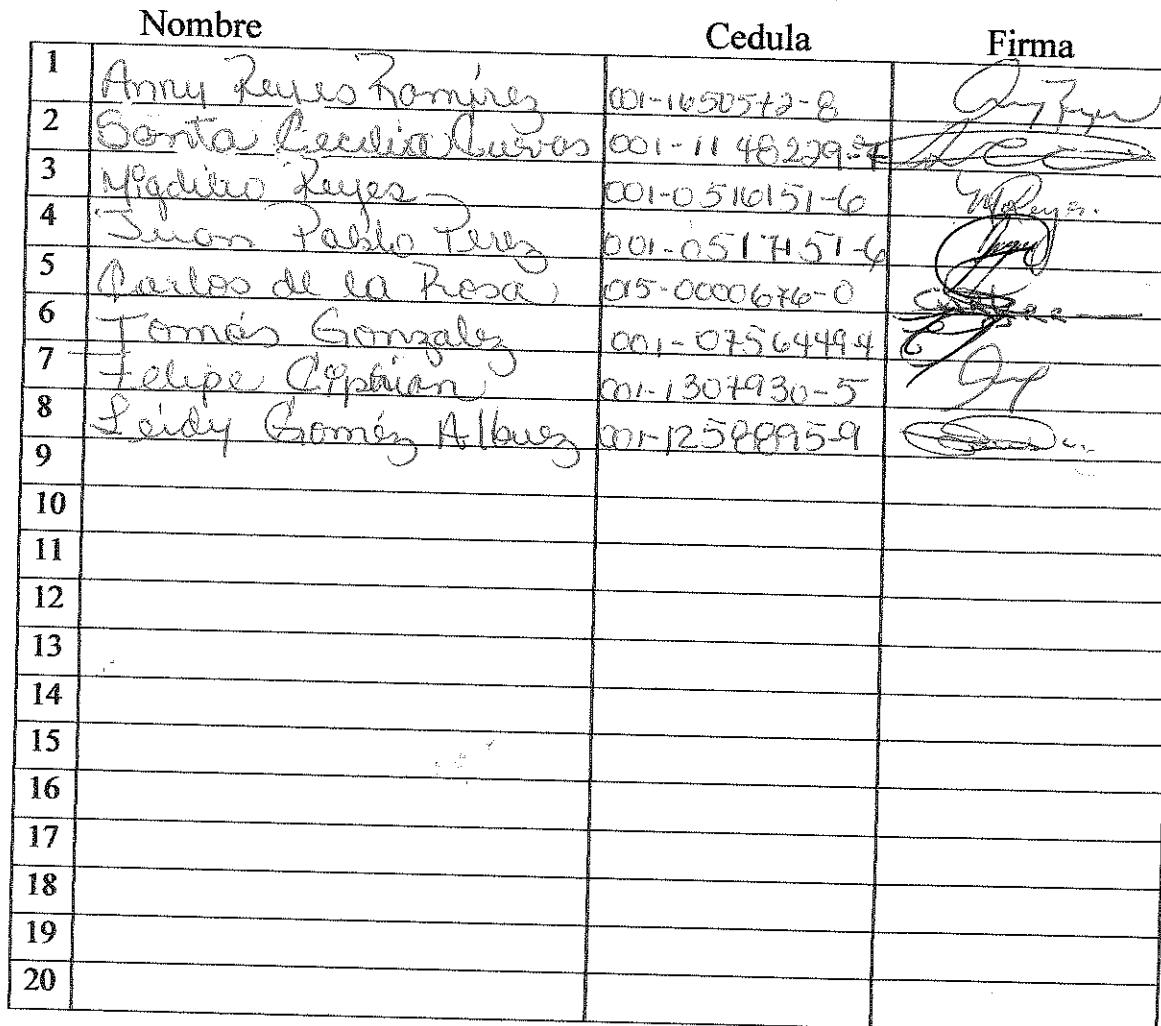 Nombre Cedula Firma
1 Anny Reyes Ramírez 001-1650572-8
2 Santa Cecilia Cuevas 001-1148229-7
3 Migdelio Reyes 001-0516151-6 M Reyes.
4 Juan Pablo Perez 001-0517151-6
5 Carlos de la Rosa 015-0000676-0
6 Tomás Gonzalez 001-0756449-4
7 Felipe Ciprian 001-1307930-5
8 Leidy Goméz Albuez 001-1258895-9
9
10
11
12
13
14
15
16
17
18
19
20